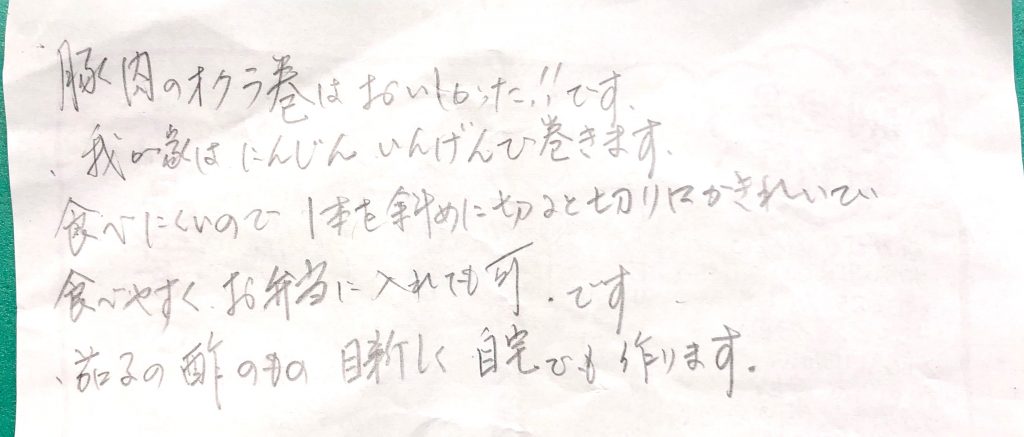 豚肉のオクラ巻はおいしかった!!です、
、我が家はにんじん いんげんで巻きます、
食べにくいので 1本を斜めに切ると切り口がきれいで
食べやすく、お弁当に入れても可.です
、茄子の酢のもの 目新しく 自宅でも作ります.